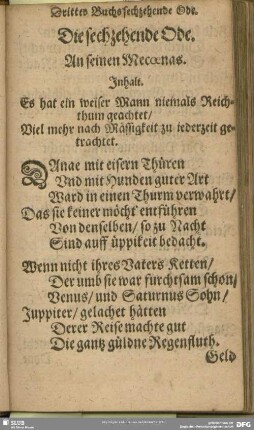 Drittes Buchs sechzehende Ode.
Die sechzehende Ode.
An seinen Mecœnas.
Inhalt.
Es hat ein weiser Mann niemals Reich-
thum geachtet/
Viel mehr nach Mässigkeit zu jederzeit ge-
trachtet.
DAnae mit eisern Thüren
Vnd mit Hunden guter Art
Ward in einen Thurm verwahrt/
Das sie keiner möcht' entführen
Von denselben/ so zu Nacht
Sind auff üppikeit bedacht.
Wenn nicht ihres Vaters Ketten/
Der umb sie war furchtsam schon/
Venus/ und Saturnus Sohn/
Juppiter/ gelachet hätten
Derer Reise machte gut
Die gantz güldne Regenfluth.
Geld
SLUB
DFG